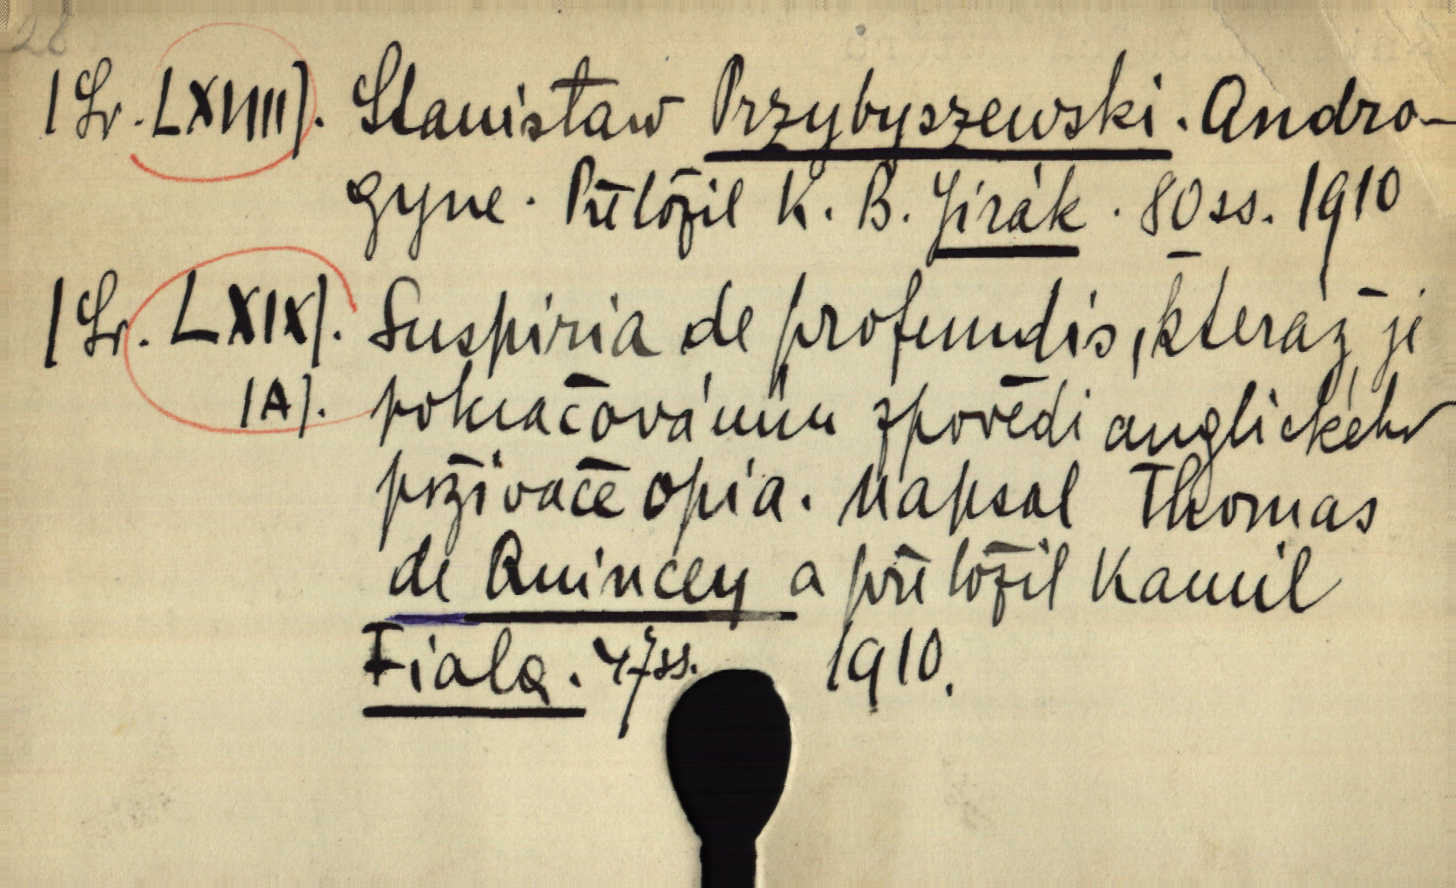 28
/Sv. LXVIII/. Stanisław Przybyszewski. Andro-
gyne. Přeložil K. B. Jirák. 80 ss. 1910
/Sv. LXIX/. Suspiria de profundis, kteráž je
/A/. pokračováním zpovědi anglického
poživače opia. Napsal Thomas
de Quincey a přeložil Kamil
Fiala. 47 ss. 1910.